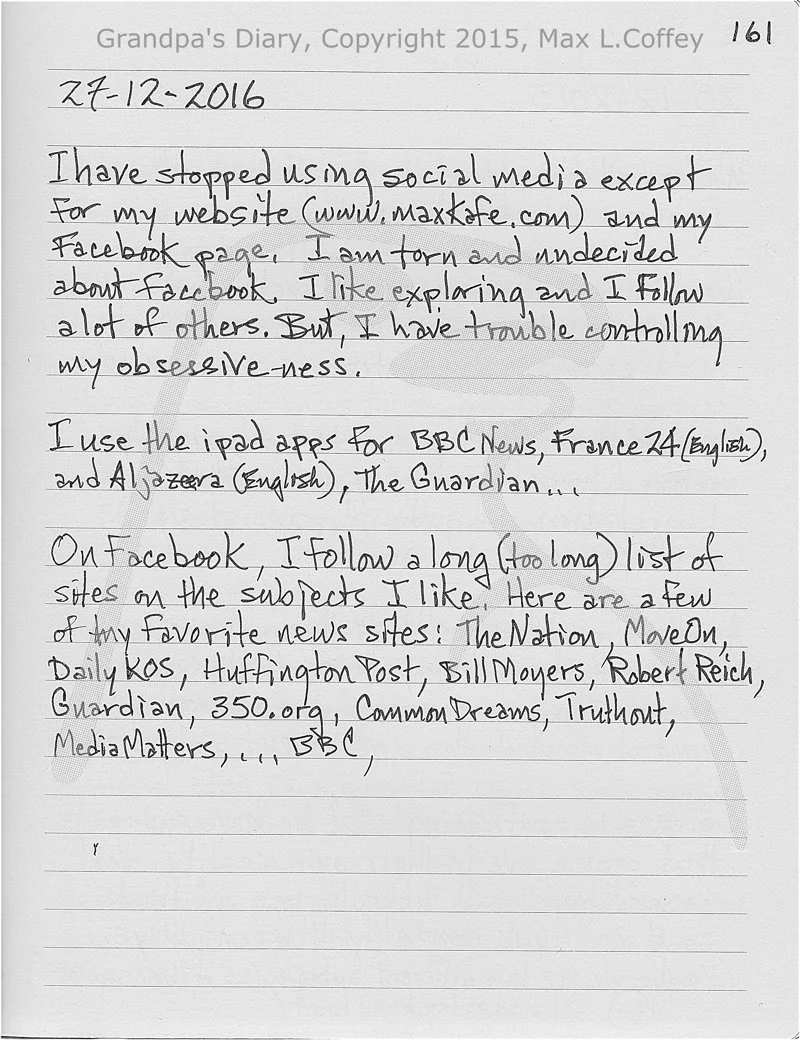 Grandpa's Diary, Copyright 2015, Max L.Coffey
161
27-12-2016
I have stopped using social media except
for my website (www.maxkafe.com) and my
Facebook page. I am torn and undecided
about Facebook. I like exploring and I Follow
a lot of others. But, I have trouble controlling
my obsessive-ness.
I use the ipad apps for BBC News, France 24 (English),
and Aljazeera (English), The Guardian...
On Facebook, I follow a long (too long) list of
sites on the subjects I like. Here are a few
of my favorite news sites: The Nation, MoveOn,
Daily KOS, Huffington Post, Bill Moyers, Robert Reich,
Guardian, 350.org, Common Dreams, Truthout,
Media Matters, .... BBC,